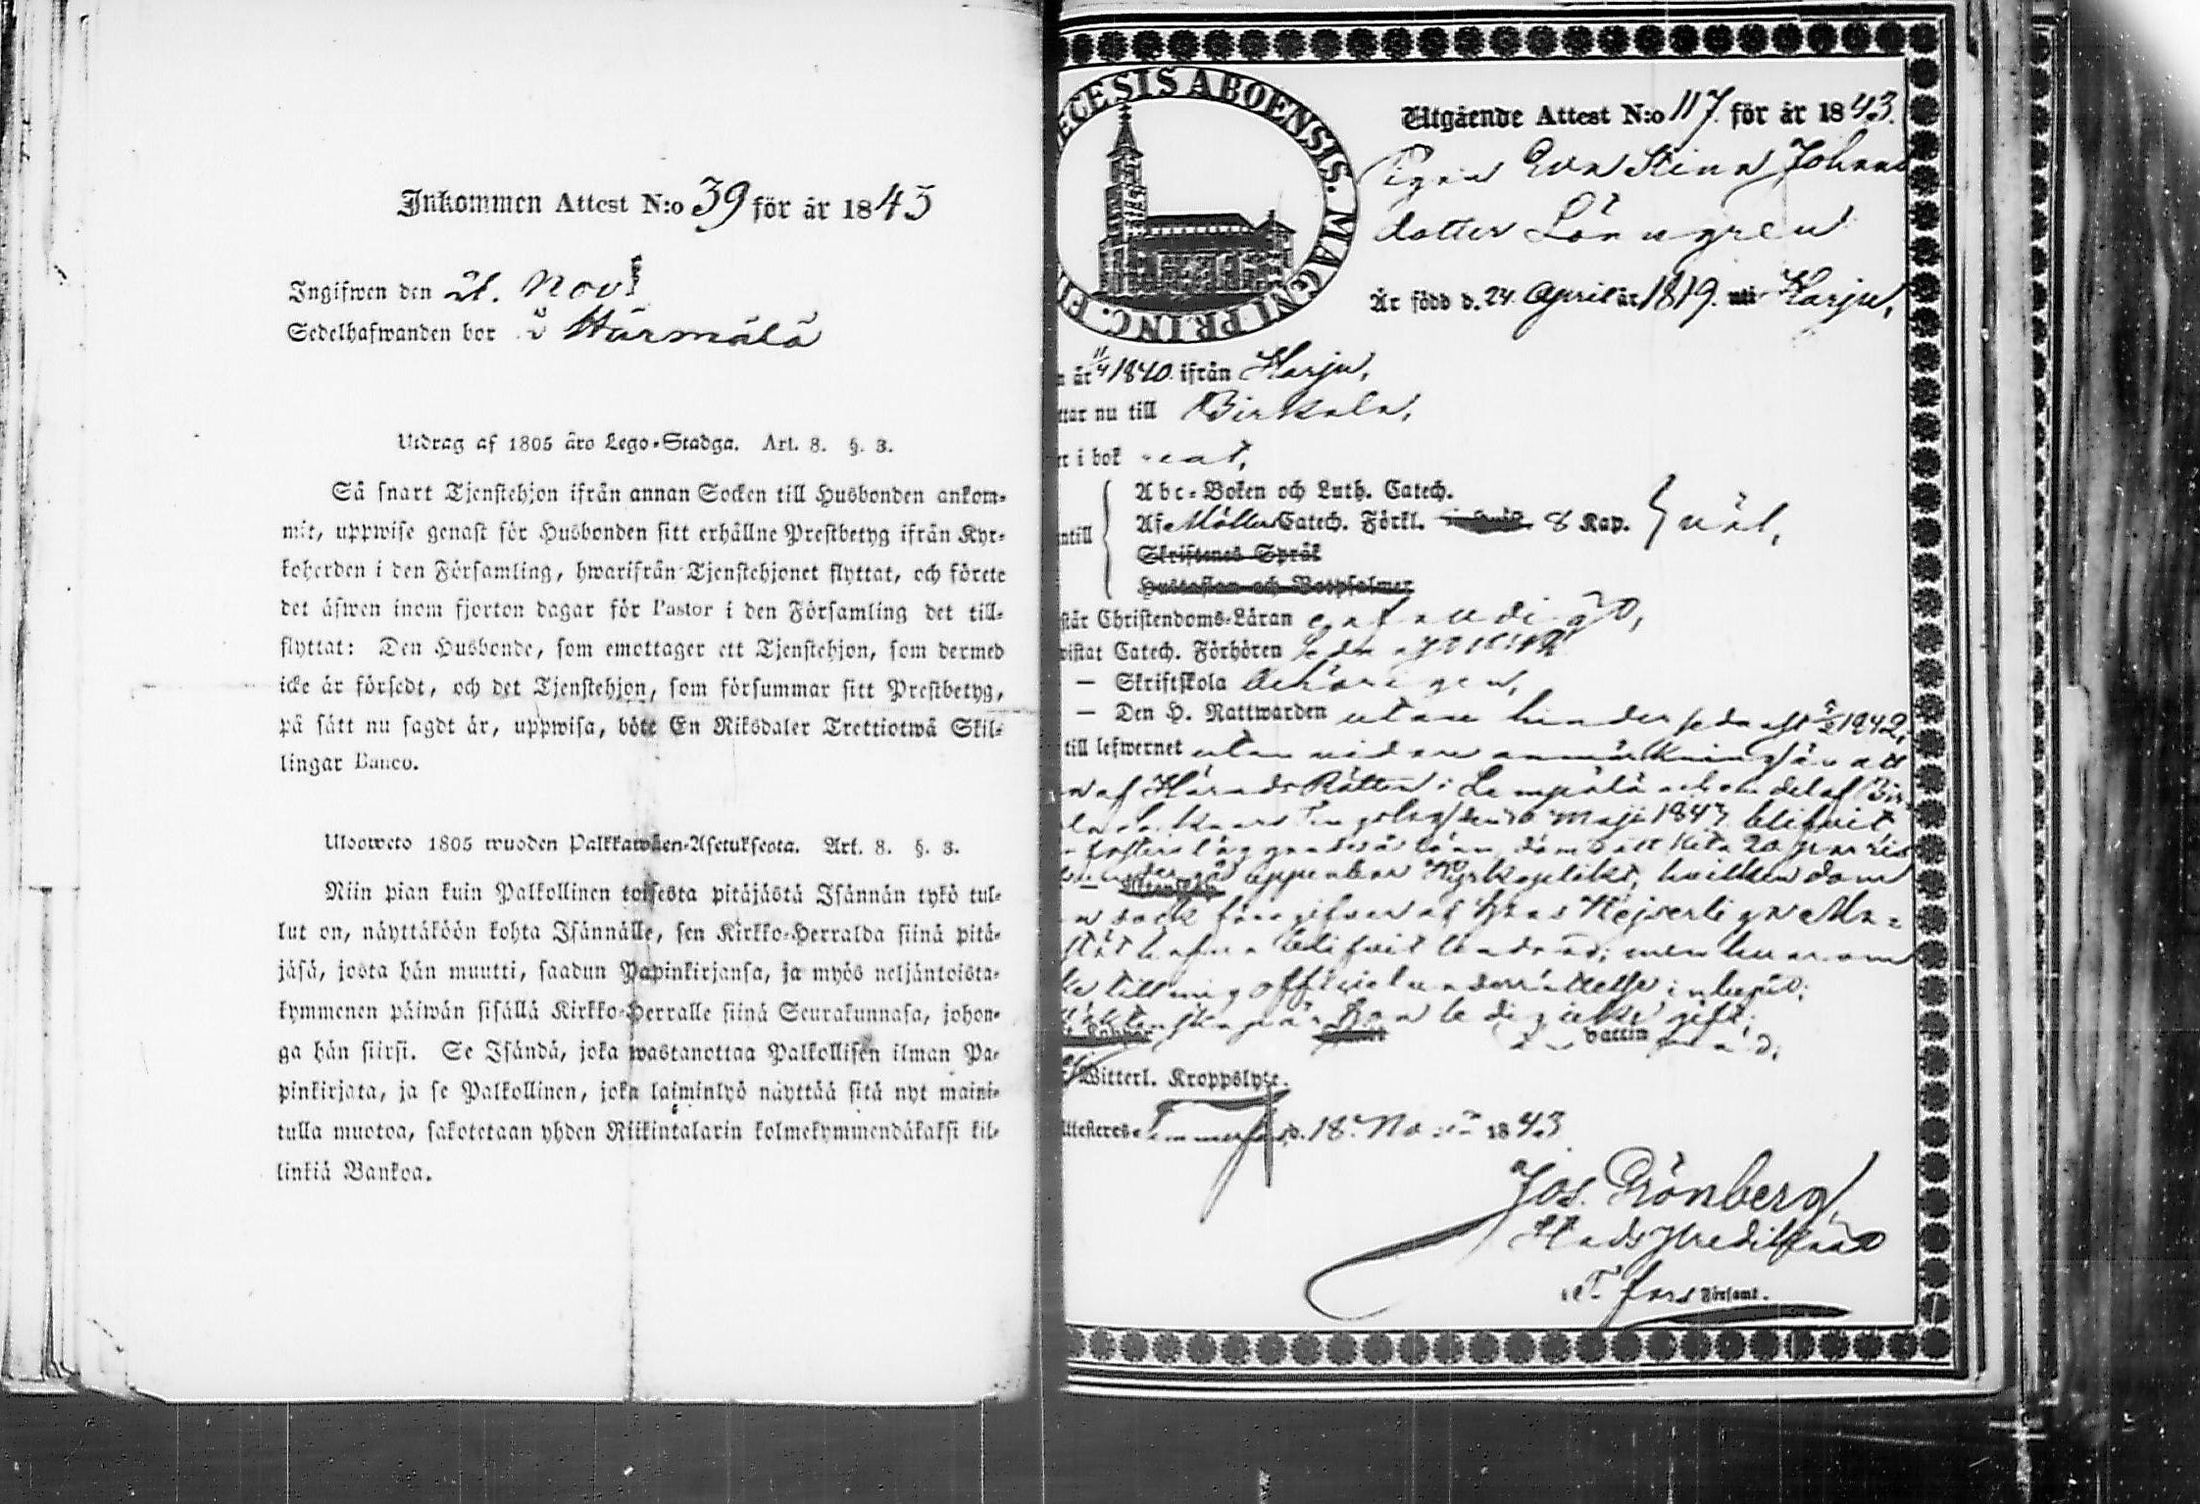 Inkommen Attest N:o 39 för år 1843
Ingifwen den 21. Nov:
Sedelhafwanden bor i Härmälä
Utdrag af 1805 års Lego-Stadga. Art. 8. §. 3.
Så snart Tjenstehjon ifrån annan Socken till Husbonden ankom-
mit, uppwise genast för Husbonden sitt erhållne Prestbetyg ifrån Kyr-
koherden i den Församling, hwarifrån Tjenstehjonet flyttat, och förete
det äfwen inom fjorton dagar för Pastor i den Församling det till-
flyttat: Den Husbonde, som emottager ett Tjenstehjon, som dermed
icke är försedt, och det Tjenstehjon, som försummar sitt Prestbetyg,
på sätt nu sagdt är, uppwisa, böte En Riksdaler Trettiotwå Skil-
lingar Banco.
Ulosweto 1805 wuoden Palkkawäen-Asetuksesta. Art. 8. §. 3.
Niin pian kuin Palkollinen toisesta pitäjästä Isännän tykö tul-
lut on, näyttäköön kohta Isännälle, sen Kirkko-Herralda siinä pitä-
jäsä, josta hän muutti, saadun Papinkirjansa, ja myös neljäntoista-
kymmenen päiwän sisällä Kirkko-Herralle siinä Seurakunnasa, johon-
ga hän siirsi. Se Isändä, joka wastanottaa Palkollisen ilman Pa-
pinkirjata, ja se Palkollinen, joka laiminlyö näyttää sitä nyt maini-
tulla muotoa, sakotetaan yhden Riikintalarin kolmekymmendäkaksi kil-
linkiä Bankoa.
ECESIS ABOENSIS. MAGNI PRINC. FI
Utgående Attest N:o 117 för år 1843.
Pigan Eva Stina Johans
dotter Lönngren
Är född d. 24. April år 1819. uti Harju,
år 11/4 1840. ifrån Harju,
ttar nu till Birkala,
i bok
Abc-Boken och Luth. Catech.
Af Möllers Catech. Förkl. 8 Kap. väl,
ntill
Skriftenes Språk
Hustaflan och Botpsalmer
står Christendoms-Läran
wistat Catech. Förhören
— Skriftskola behörigen,
— Den H. Nattwarden utan hinder sednast 1842,
till lefwernet utan vidare anmärkning än att
af Härads Rätten i Lempälä och en del af Bir-
Maji 1843 blifvit
20 par ris
uppenbar Kyrkoplikt, hvilken dom
dock af Hans Kejserliga Ma-
stät blifvit men hvarom
till mig officiel underrättelse
ledig icke gift;
vattin
Witterl. Kroppslyte.
Attesteres Tammerfors, d. 18. Nov: 1843
Jos. Grönberg,
StadsPredikant
i T.fors Församl.